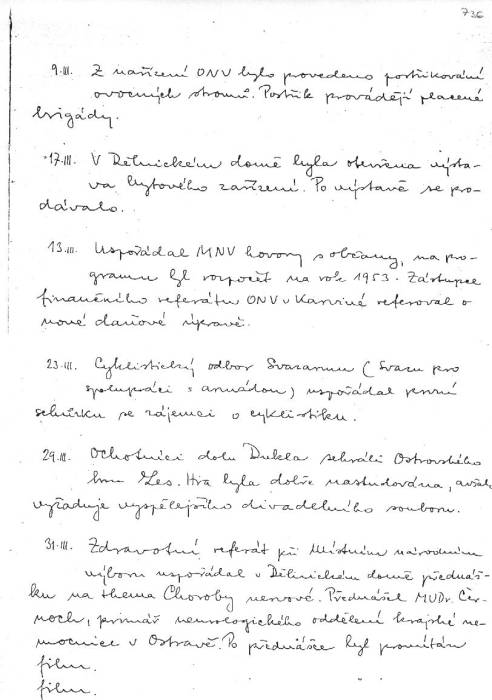 736
9.III. Z nařízení ONV bylo provedeno postřikování
ovocných stromů. Postřik provádějí placené
brigády.
17.III. V Dělnickém domě byla otevřena výsta-
va bytového zařízení. Po výstavě se pro-
dávalo.
13.III. Uspořádal MNV hovory s občany, na pro-
gramu byl rozpočet na rok 1953. Zástupce
finančního referátu ONV v Karviné referoval o
nové daňové úpravě.
23.III. Cyklistický odbor Svazarmu (Svazu pro
spolupráci s armádou) uspořádal první
schůzku se zájemci o cyklistiku.
29.III. Ochotníci dolu Dukla sehráli Ostrovského
hru Les. Hra byla dobře nastudována, avšak
vyžaduje vyspělejšího divadelního souboru.
31.III. Zdravotní referát při Místním národním
výboru uspořádal v Dělnickém domě přednáš-
ku na thema Choroby nervové. Přednášel MUDr. Čer-
noch, primář neurologického oddělení krajské ne-
mocnice v Ostravě. Po přednášce byl promítán
film.
film.